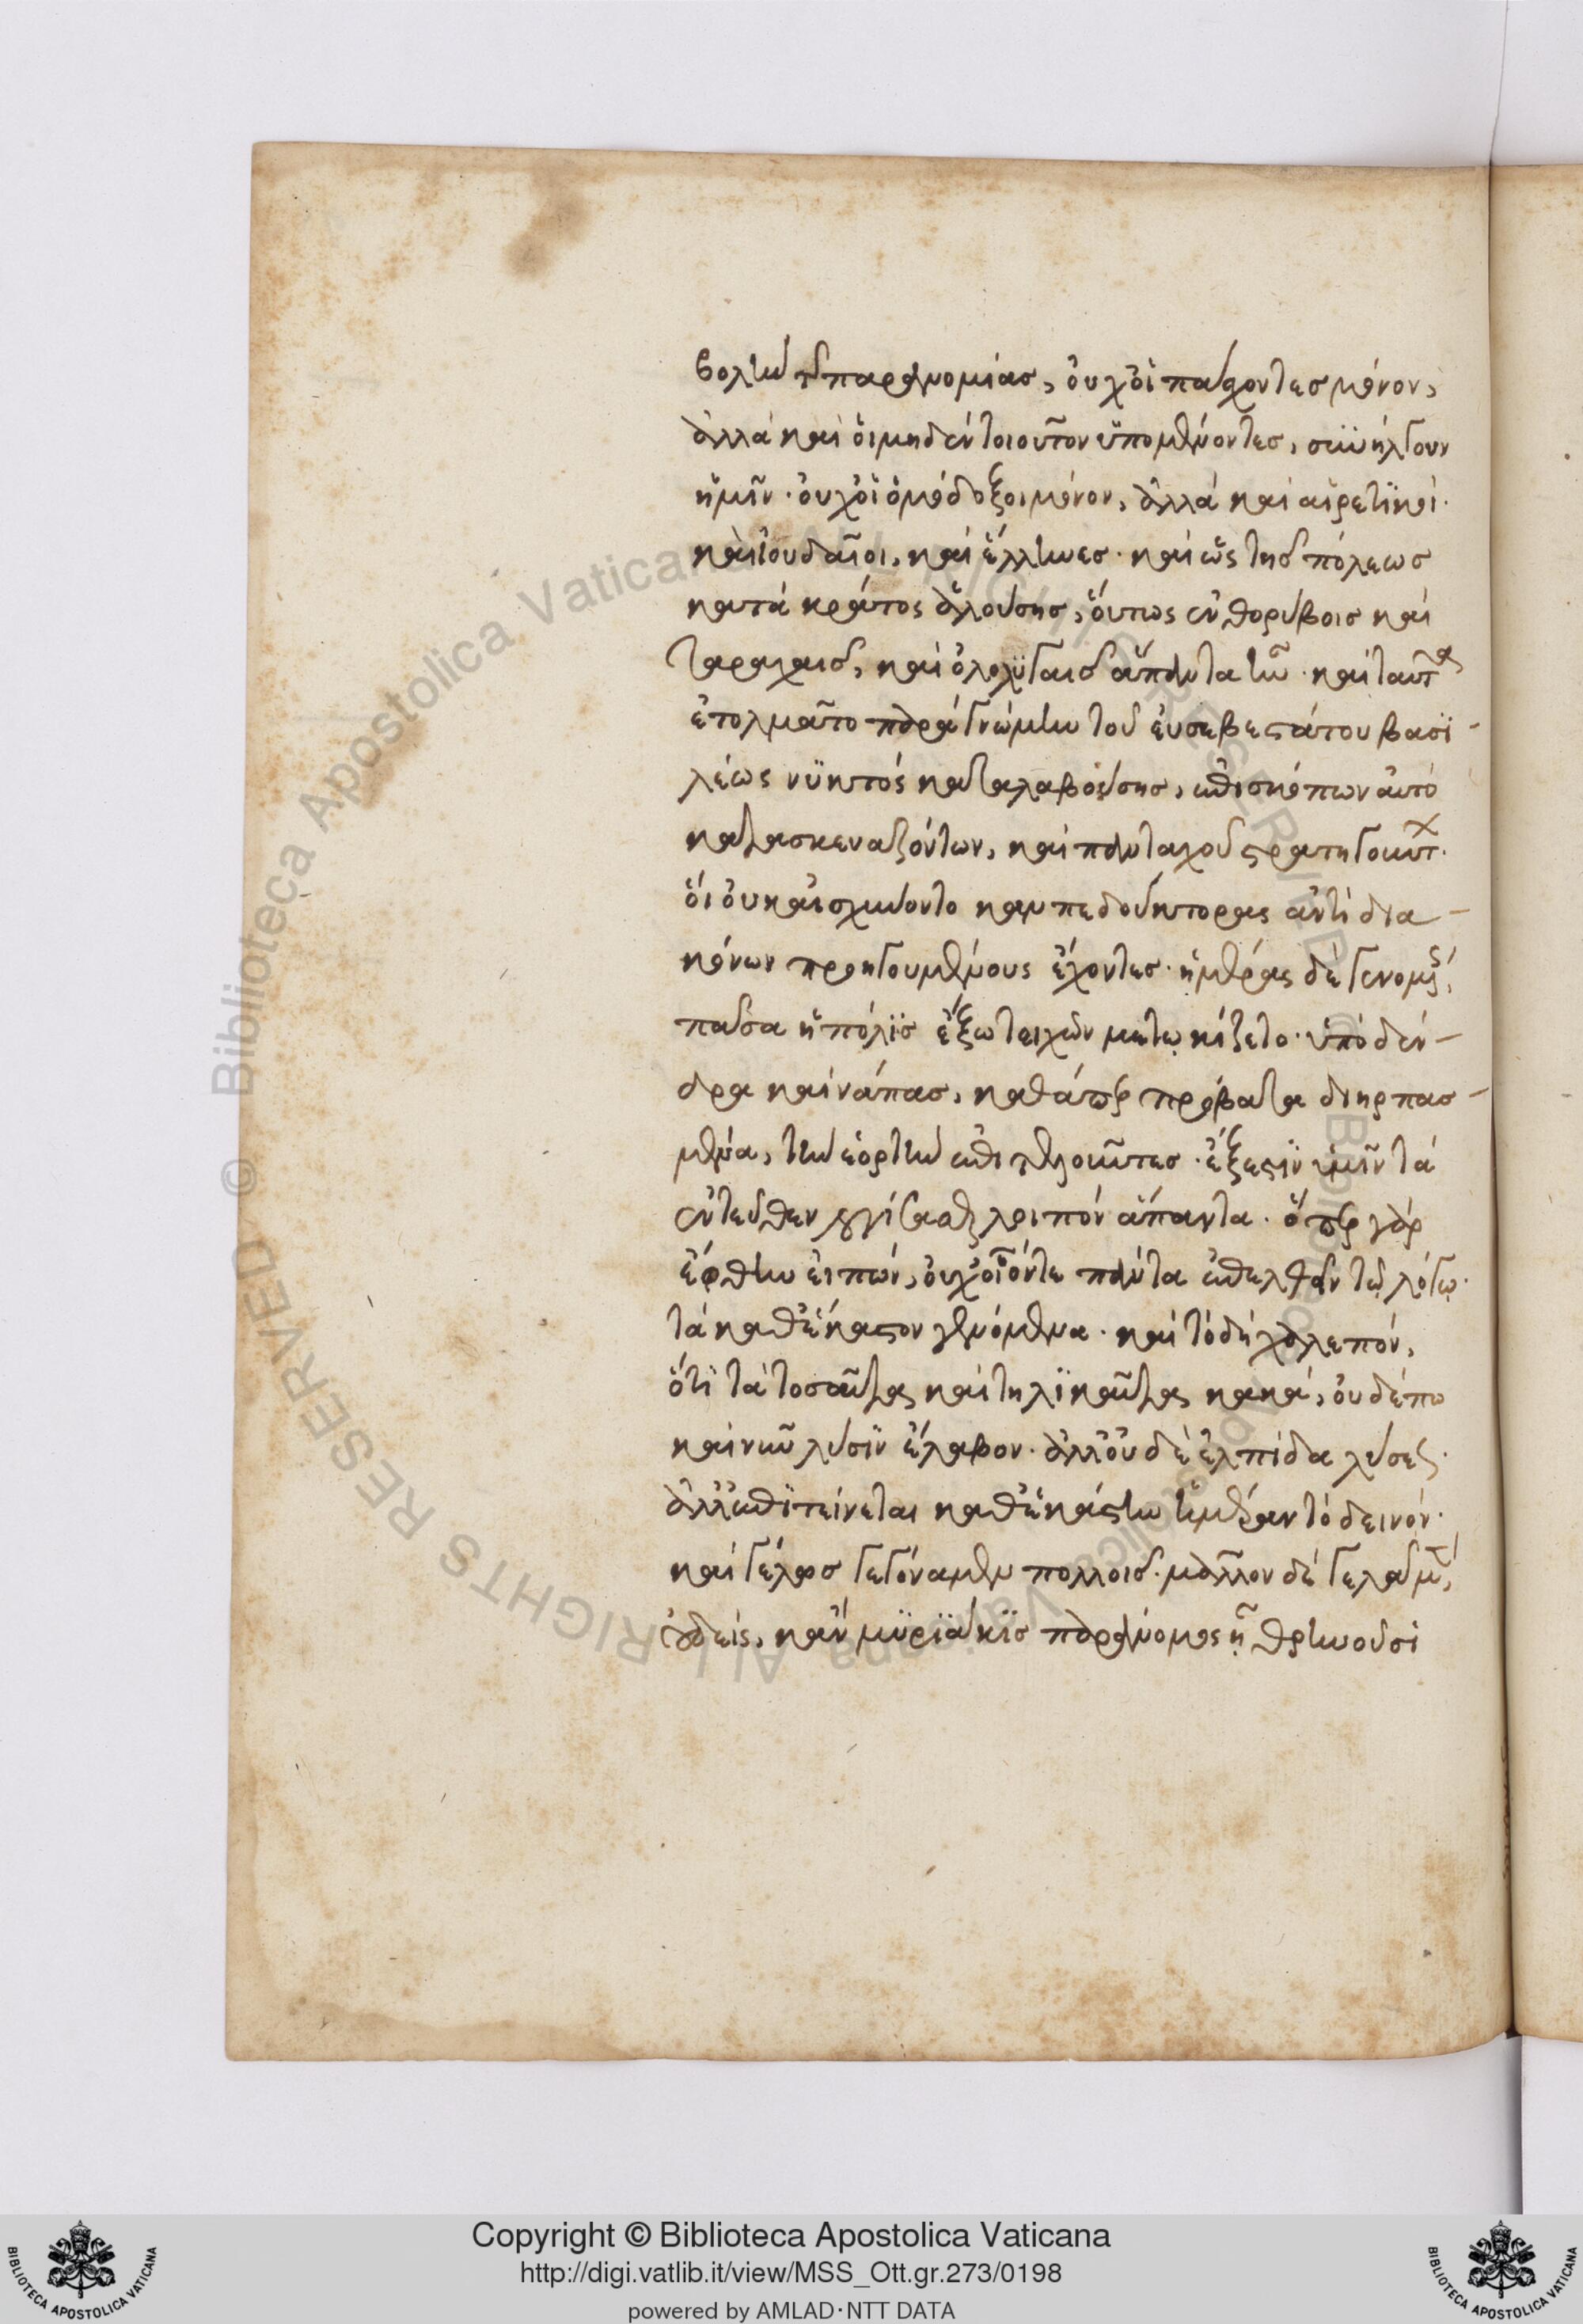 βολὴν τῆς παρανομίας, οὐχ οἱ πάσχοντες μόνον,
ἀλλὰ καὶ οἱ μηδὲν τοιοῦτον ὑπομένοντες, συνήλγουν
ἡμῖν· οὐχ οἱ ὁμόδοξοι μόνον, ἀλλὰ καὶ αἱρετικοί·
καὶ ἰουδαῖοι, καὶ ἕλληνες· καὶ ὡς τῆς πόλεως
κατὰ κράτος ἁλούσης, οὕτως ἐν θορύβοις καὶ
ταραχαῖς, καὶ ὀλολυγαῖς ἅπαντα ἦν· καὶ ταῦτα
ἐτολμᾶτο παρὰ γνώμην τοῦ εὐσεβεστάτου βασι-
λέως νυκτὸς καταλαβούσης, ἐπισκόπων αὐτὸ
κατασκευαζόντων, καὶ πανταχοῦ στρατηγούντ
οἱ οὐκ ᾐσχύνοντο καμπεδούκτορας ἀντὶ δια-
κόνων προηγουμένους ἔχοντες· ἡμέρας δὲ γενομς,
πᾶσα ἡ πόλις ἔξω τειχῶν μετῳκίζετο· ὑπὸ δέν-
δρα καὶ νάπας, καθάπερ πρόβατα διηρπασ-
μένα, τὴν ἑορτὴν ἐπιτελοῦντες· ἔξεστιν ὑμῖν τὰ
ἐντεῦθεν λογίσασθαι λοιπὸν ἅπαντα· ὅπερ γὰρ
ἔφθην εἰπών, οὐχ οἷόν τε πάντα ἐπελθεῖν τῷ λόγῳ·
τὰ καθ' ἕκαστον γενόμενα· καὶ τὸ δὴ χαλεπόν,
ὅτι τὰ τοσαῦτα καὶ τηλικαῦτα κακά, οὐδέπω
καὶ νῦν λύσιν ἔλαβον· ἀλλ' οὐδὲ ἐλπίδα λύσεως·
ἀλλ' ἐπιτείνεται καθ' ἑκάστην ἡμέραν τὸ δεινόν·
καὶ γέλως γεγόναμεν πολλοῖς· μᾶλλον δὲ γελᾷ μ,
οὐδείς, κἂν μυριάκις παράνομος ᾖ θρηνοῦσι